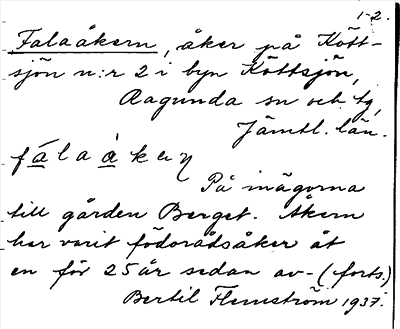 1-2.
Falaåkern, åker på Kött-
sjön n:r 2 i byn Köttsjön,
Ragunda sn och tg,
Jämtl. län.
fálaàkeɳ
På inägorna
till gården Berget. Åkern
har varit födorådsåker åt
en för 25 år sedan av- (forts.)
Bertil Flemström 1937.